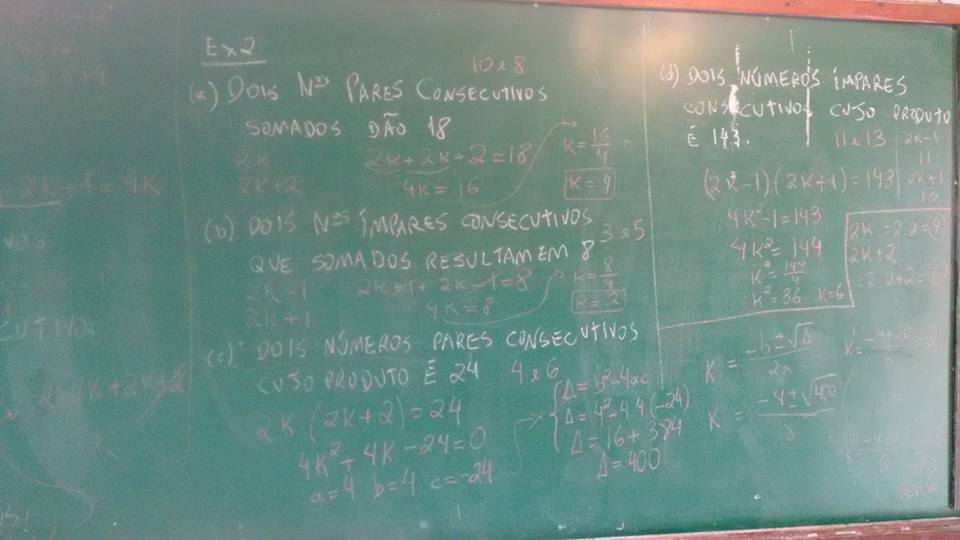 Ex2
10 e 8
(a) DOIS Nos PARES CONSECUTIVOS
SOMADOS DÃO 18
2K
2K+2
2K+2K+2=18
4K=16
K=16/4
K=4
(b) DOIS Nos ÍMPARES CONSECUTIVOS
3 e 5
QUE SOMADOS RESULTAM EM 8
2K-1
2K+1
2K+1+2K-1=8
4K=8
K=8/4
K=2
(c) DOIS NÚMEROS PARES CONSECUTIVOS
CUJO PRODUTO É 24 4 e 6
2K(2K+2)=24
4K²+4K-24=0
a=4 b=4 c=-24
Δ=b²-4ac
Δ=4²-4.4(-24)
Δ=16+384
Δ=400
K=-b±√Δ/2a
K=-4±√400/8
(d) DOIS NÚMEROS ÍMPARES
CONSECUTIVOS CUJO PRODUTO
É 143. 11 e 13
2K-1
11
2K+1
13
(2K-1)(2K+1)=143
4K²-1=143
4K²=144
K²=144/4
K²=36 K=6
2K=2.2=4
2K+2
=2.2+2=6
2K+1=4K